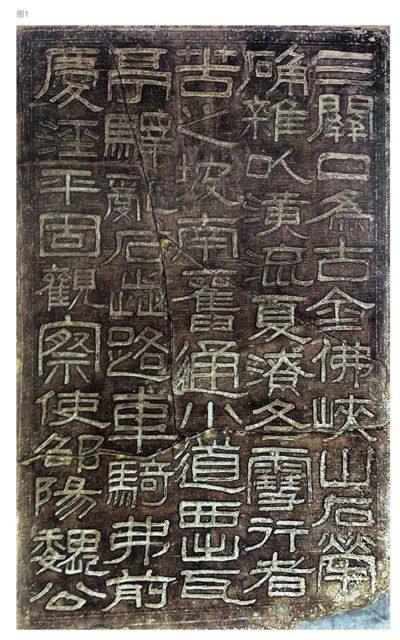 图1
三關口為古金佛峽山石犖
确雜以潢流夏潦冬雪行者
苦之坡南舊通小道西出瓦
亭驛亂石路車騎弗前
慶涇平固觀察使邵陽魏公